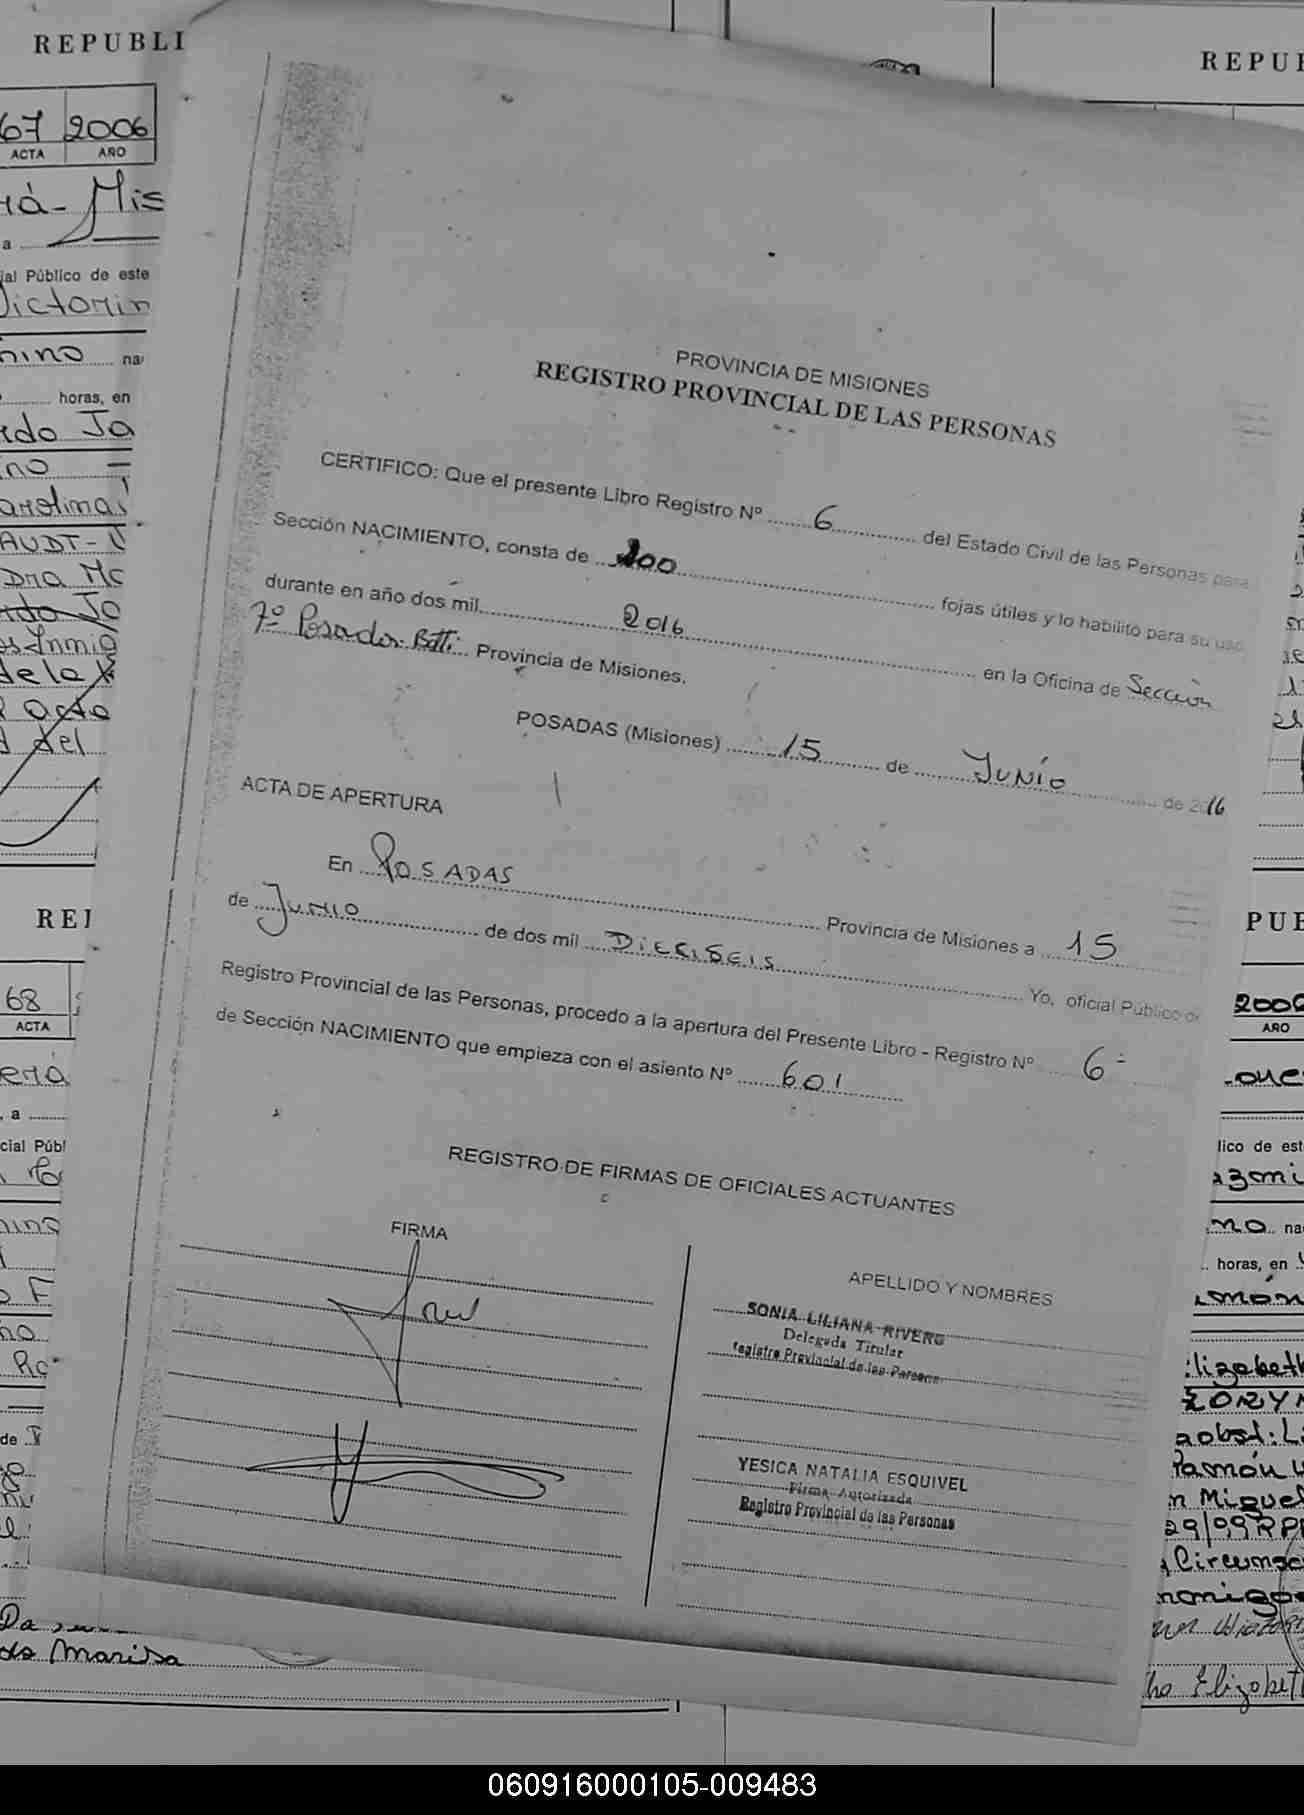 REPUBLI
67 2006
ACTA AÑO
Mis
a
ial Público de este
Victorin
nino na
horas, en
rdo Ja
no
arolina
AUDT-
Dra
de la
acto
del
REPUB
PROVINCIA DE MISIONES
REGISTRO PROVINCIAL DE LAS PERSONAS
CERTIFICO: Que el presente Libro Registro Nº 6 del Estado Civil de las Personas para
Sección NACIMIENTO, consta de 200 fojas útiles y lo habilito para su uso
durante en año dos mil 2016 en la Oficina de Sección
7º Posadas. Provincia de Misiones.
POSADAS (Misiones) 15 de JUNIO de 2016
ACTA DE APERTURA
En POSADAS Provincia de Misiones a 15
de JUNIO de dos mil DIECISEIS Yo, oficial Público de
Registro Provincial de las Personas, procedo a la apertura del Presente Libro - Registro Nº 6-
de Sección NACIMIENTO que empieza con el asiento Nº 601
REGISTRO DE FIRMAS DE OFICIALES ACTUANTES
FIRMA
APELLIDO Y NOMBRES
SONIA LILIANA RIVERO
Delegada Titular
Registro Provincial de las Persona
YESICA NATALIA ESQUIVEL
Firma Autorizada
Registro Provincial de las Personas
REP
68
ACTA
, a
cial Públ
nino
no
Ro
de
da Marisa
PUB
2006
AÑO
lico de est
no na
horas, en
amón
lizabeth
aobst: L
Ramón
n Miguel
29/99 RP
Circunsc
ha Elizabet
060916000105-009483